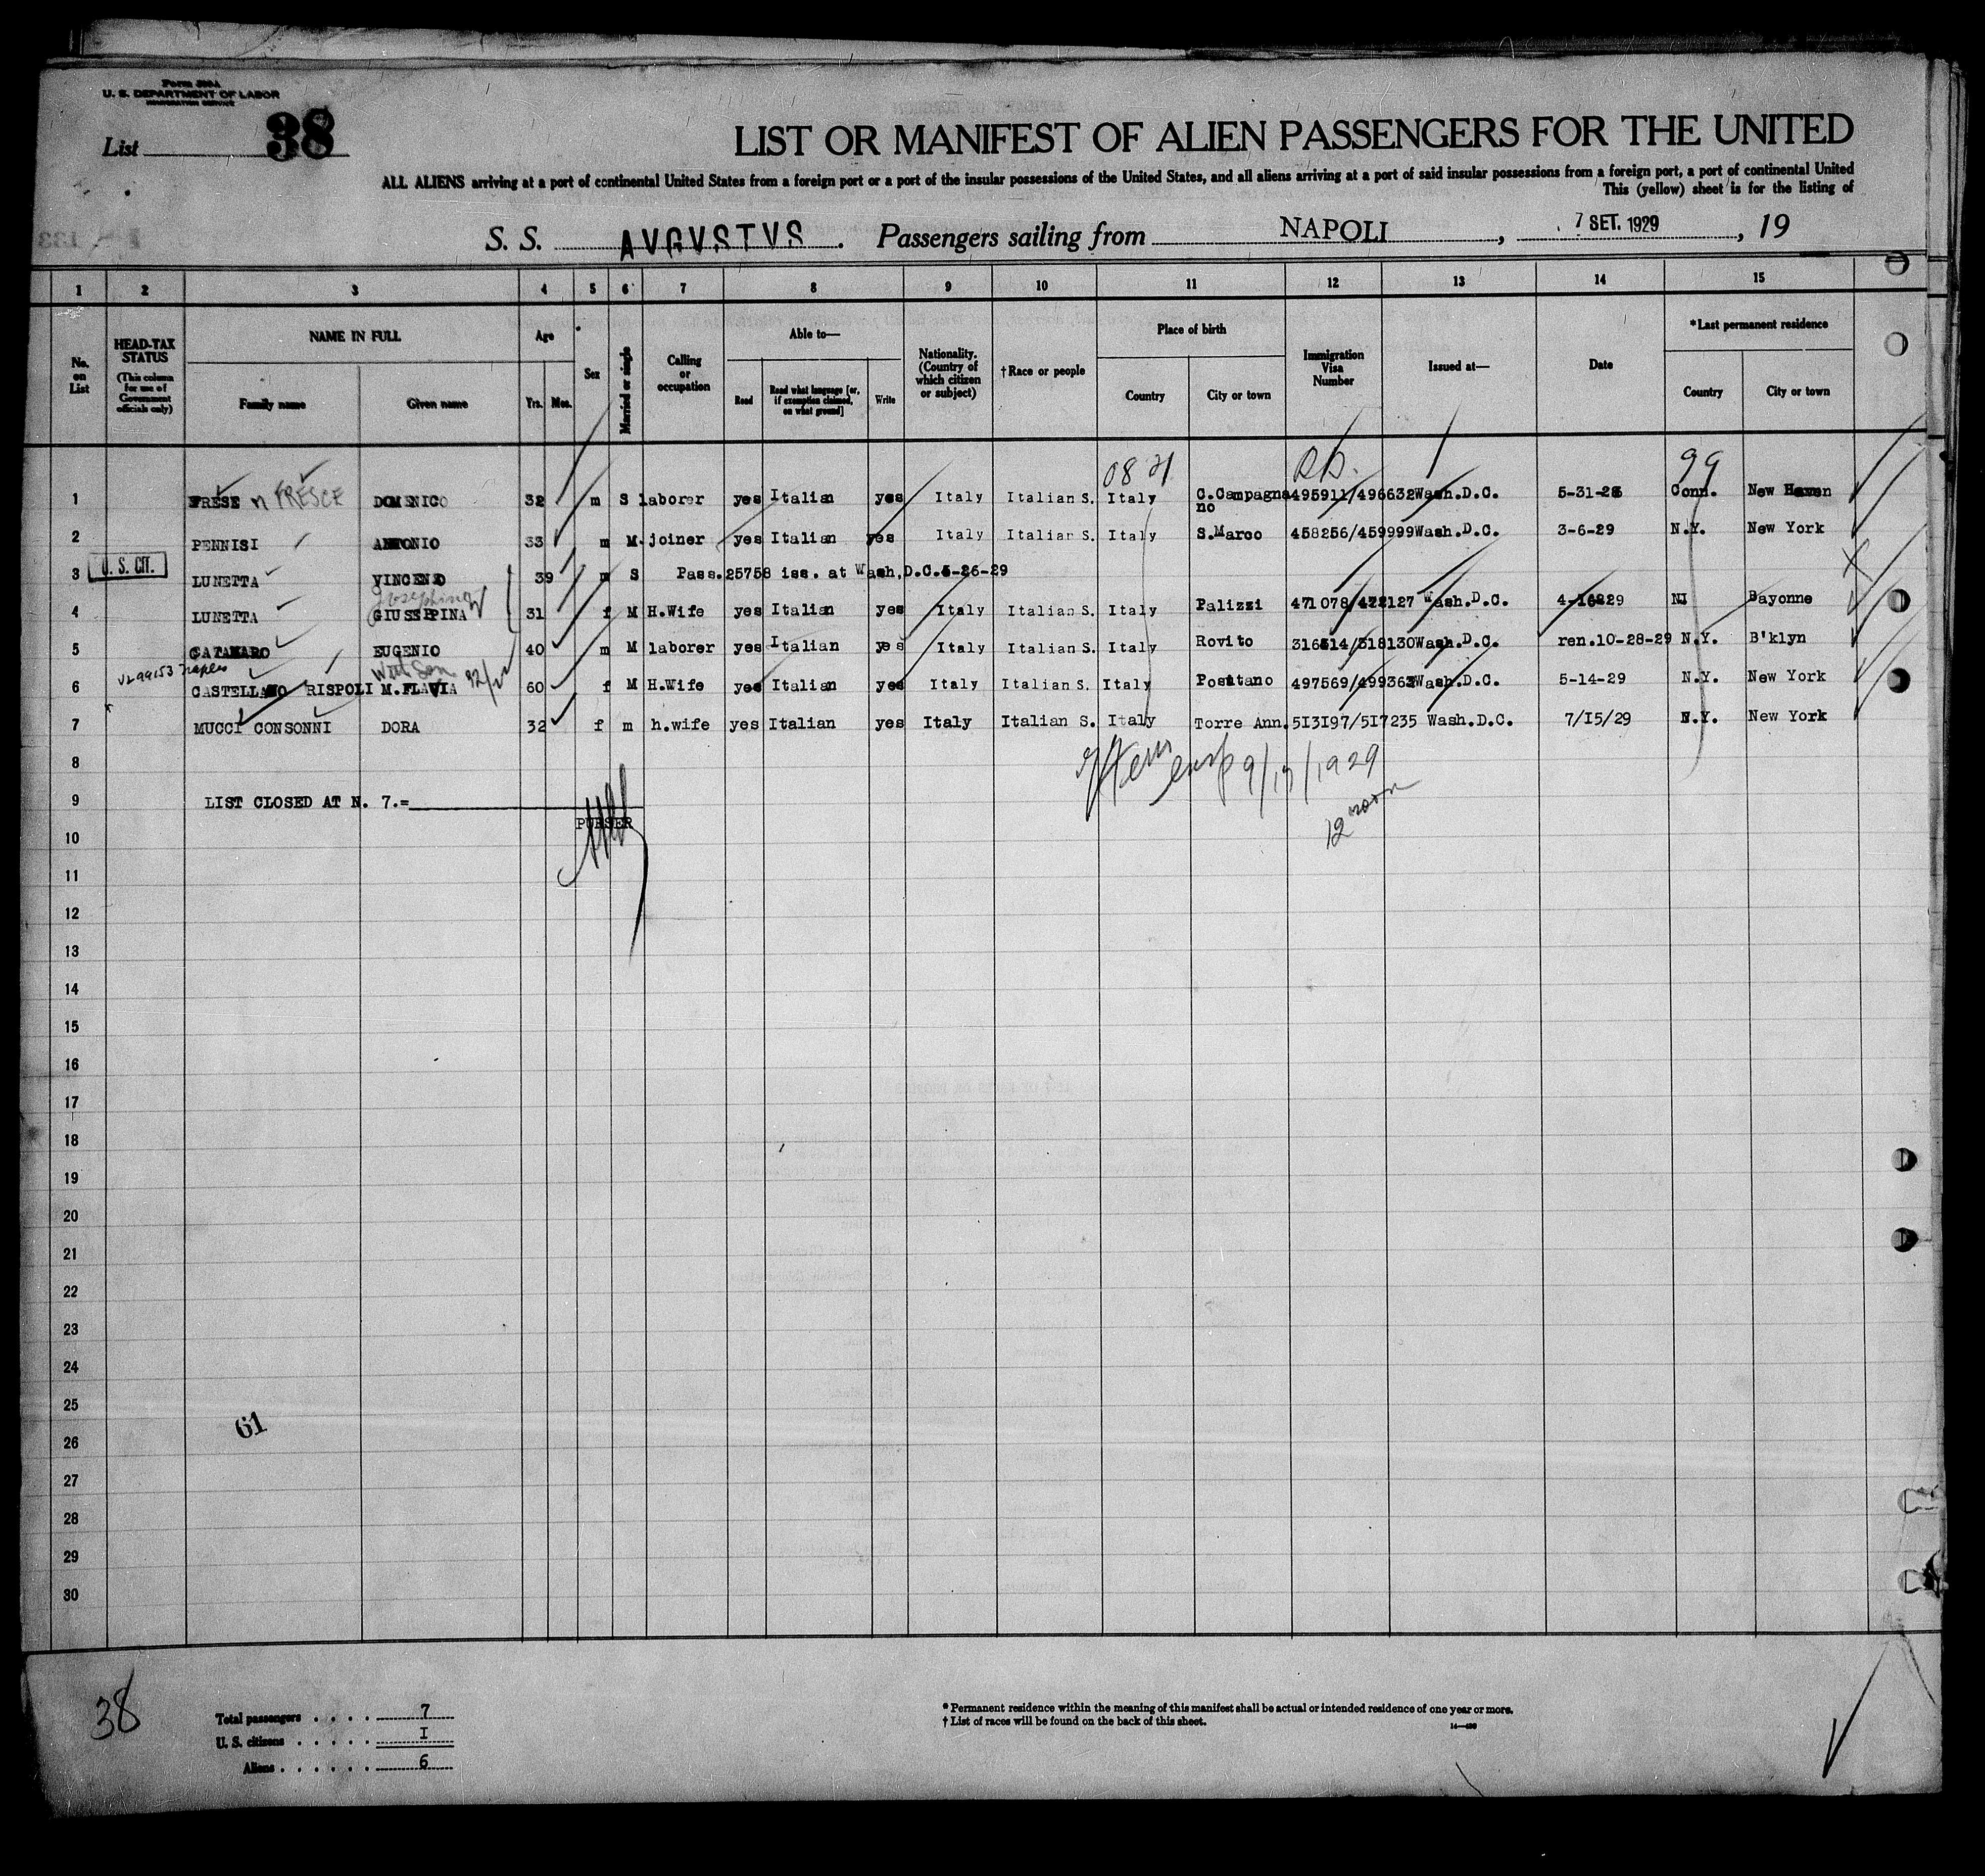 Form 500A
U. S. DEPARTMENT OF LABOR
IMMIGRATION SERVICE
List 38
LIST OR MANIFEST OF ALIEN PASSENGERS FOR THE UNITED
ALL ALIENS arriving at a port of continental United States from a foreign port or a port of the insular possessions of the United States, and all aliens arriving at a port of said insular possessions from a foreign port, a port of continental United
This (yellow) sheet is for the listing of
S. S. AVGVSTVS . Passengers sailing from NAPOLI , 7 SET. 1929 , 19
1 2 3 4 5 6 7 8 9 10 11 12 13 14 15
No. on List
HEAD-TAX STATUS (This column for use of Government officials only)
NAME IN FULL
Family name Given name
Age
Yrs. Mos.
Sex
Married or single
Calling or occupation
Able to—
Read Read what language [or, if exemption claimed, on what ground] Write
Nationality. (Country of which citizen or subject)
† Race or people
Place of birth
Country City or town
Immigration Visa Number
Issued at—
Date
*Last permanent residence
Country City or town
99
1 FRESE n FRESCE DOMENICO 32 m S laborer yes Italian yes Italy Italian S. Italy C.Campagna no 495911/496632 Wash.D.C. 5-31-28 Conn. New Haven
2 PENNISI ANTONIO 33 m M joiner yes Italian yes Italy Italian S. Italy S.Marco 458256/459999 Wash.D.C. 3-6-29 N.Y. New York
3 U. S. CIT. LUNETTA VINCENZO 39 m S Pass.25758 iss. at Wash.D.C.
Josephine
4 LUNETTA GIUSEPPINA 31 f M H.Wife yes Italian yes Italy Italian S. Italy Palizzi Wash.D.C. Bayonne
5 CATANARO EUGENIO 40 m M laborer yes Italian yes Italy Italian S. Italy Rovito Wash.D.C. ren.10-28-29 N.Y. B'klyn
Naples
6 CASTELLANO RISPOLI M.FLAVIA 60 f M H.Wife yes Italian yes Italy Italian S. Italy Positano Wash.D.C. 5-14-29 N.Y. New York
7 MUCCI CONSONNI DORA 32 f m h.wife yes Italian yes Italy Italian S. Italy Torre Ann. 5I3I97/5I7235 Wash.D.C. 7/I5/29 N.Y. New York
8
9/17/1929
9 LIST CLOSED AT N. 7.=
PURSER
12 noon
10
11
12
13
14
15
16
17
18
19
20
21
22
23
24
25
61
26
27
28
29
30
38
Total passengers . . . . 7
U. S. citizens . . . . . I
Aliens . . . . . . 6
* Permanent residence within the meaning of this manifest shall be actual or intended residence of one year or more.
† List of races will be found on the back of this sheet.